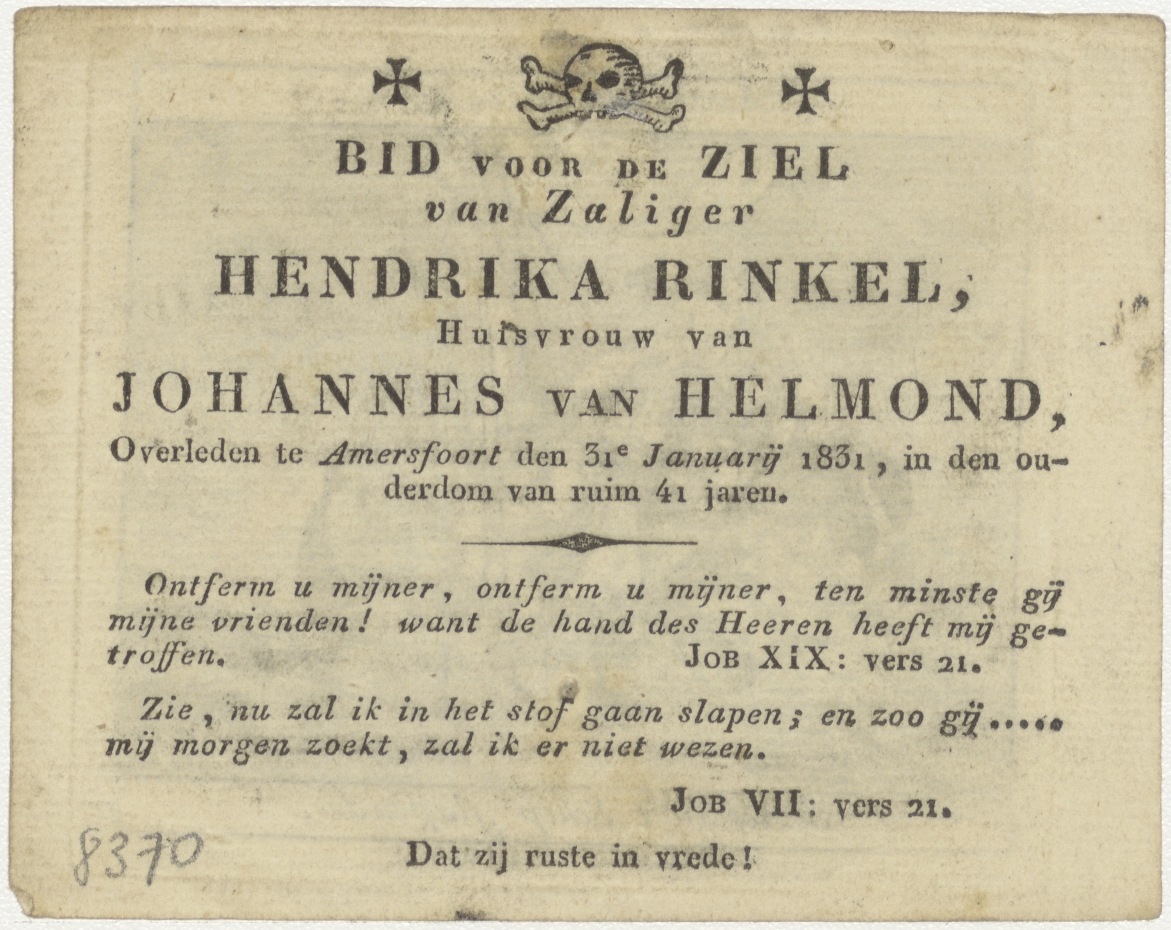 BID VOOR DE ZIEL
van Zaliger
HENDRIKA RINKEL,
Huisvrouw van
JOHANNES VAN HELMOND,
Overleden te Amersfoort den 31e Januarij 1831, in den ou-
derdom van ruim 41 jaren.
Ontferm u mijner, ontferm u mijner, ten minste gij
mijne vrienden! want de hand des Heeren heeft mij ge-
troffen. JOB XIX: vers 21.
Zie, nu zal ik in het stof gaan slapen; en zoo gij.....
mij morgen zoekt, zal ik er niet wezen.
JOB VII: vers 21.
8370
Dat zij ruste in vrede!